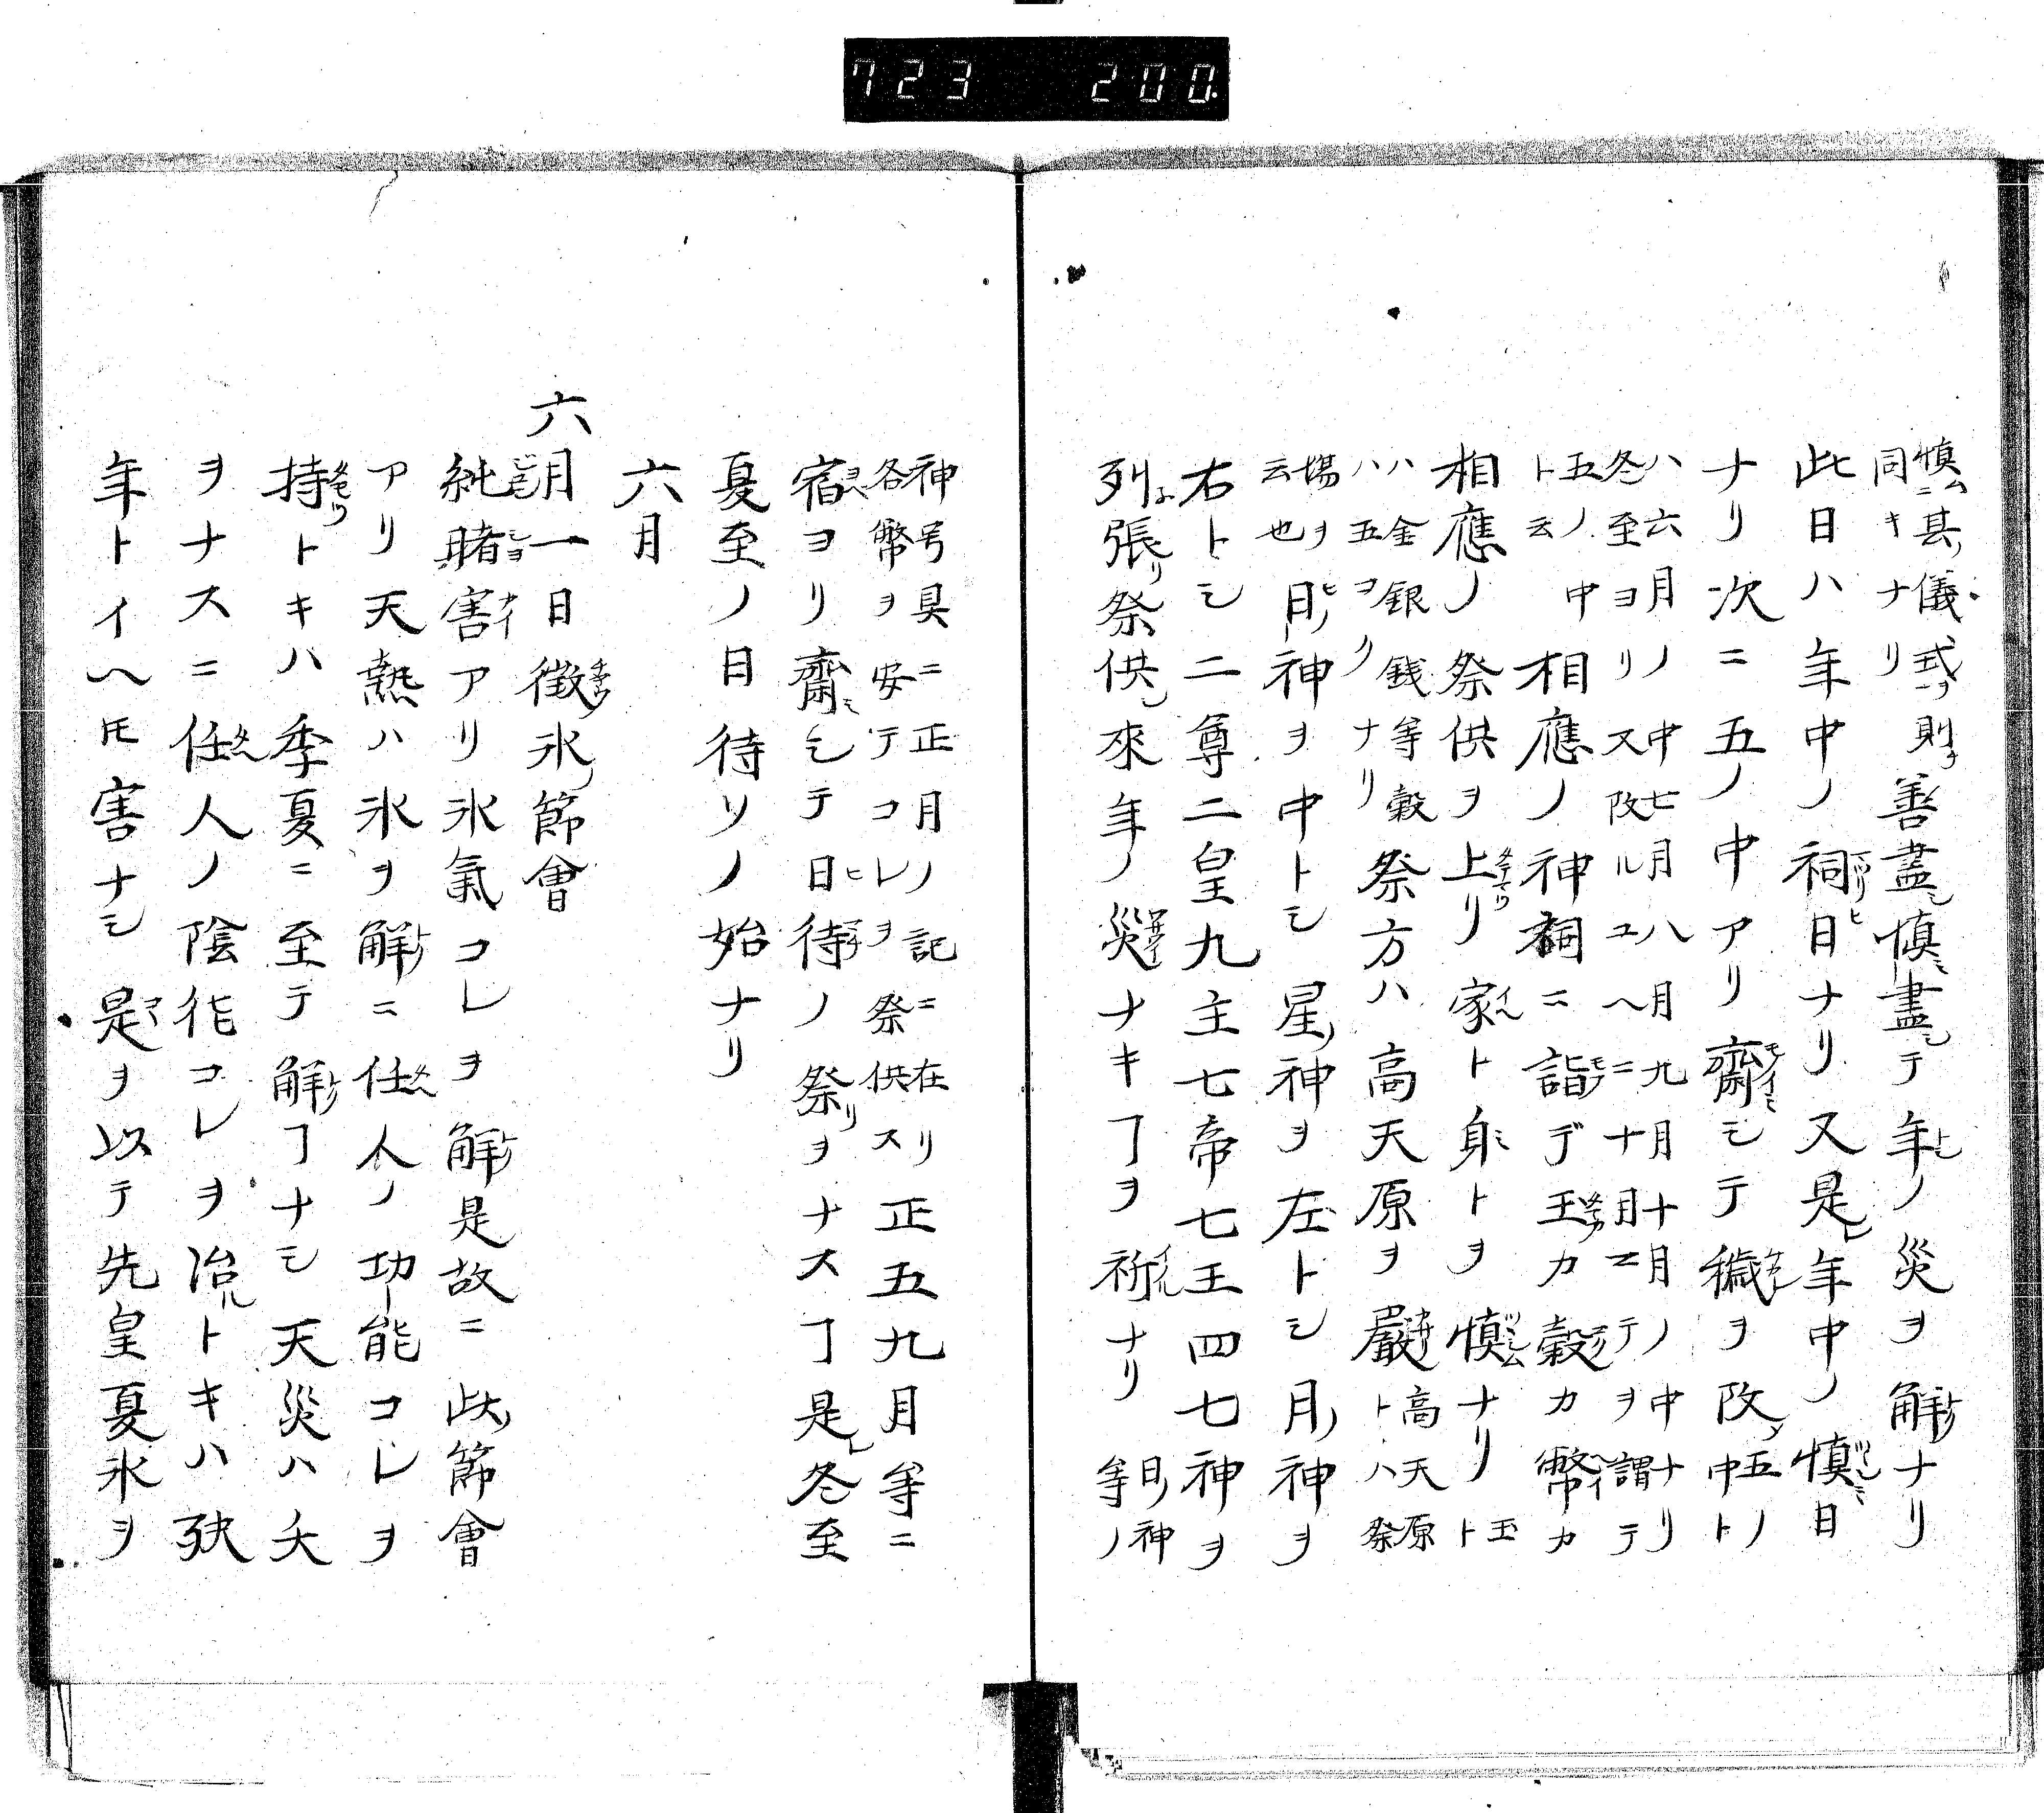 723 200
慎ム甚儀式ヲ則
同キナリ
善盡慎盡テ年ノ災ヲ解ナリ
此日ハ年中ノ祠日ナリ又是年中ノ慎日
ナリ次ニ五ノ中アリ齋シテ穢ヲ改
五ノ
中ト
ハ六月ノ中七月八月九月十月ノ中ナリ
冬至ヨリ又改ルユヘニ十月
テヲ謂テ
五ノ中
ト云
相應ノ神祠ニ詣デ王カ穀カ幣カ
相應ノ祭供ヲ上リ家ト身トヲ慎ナリ
玉ト
ハ金銀銭等穀
ハ五ヲクナリ
祭方ハ高天原ヲ嚴
高天原
トハ祭
場ヲ
云也
日神ヲ中トシ星神ヲ左トシ月神ヲ
右トシ二尊二皇九主七帝七王四七神ヲ
列張祭供來年ノ災ナキヿヲ祈ナリ
日神
等ノ
神号具ニ正月ノ記ニ在リ
各幣ヲ安テコレヲ祭供ス
正五九月等ニ
宿ヨリ齋シテ日待ノ祭ヲナスヿ是冬至
夏至ノ日待リノ始ナリ
六月
六月一日徴氷節會
純賭害アリ氷氣コレヲ解是故ニ此節會
アリ天熱ハ氷ヲ解ニ任人ノ功能コレヲ
持トキハ季夏ニ至テ解ヿナシ天災ハ夭
ヲナスニ任人ノ陰能コレヲ治トキハ殃
年トイヘ𪜈害ナシ是ヲ以テ先皇夏氷ヲ